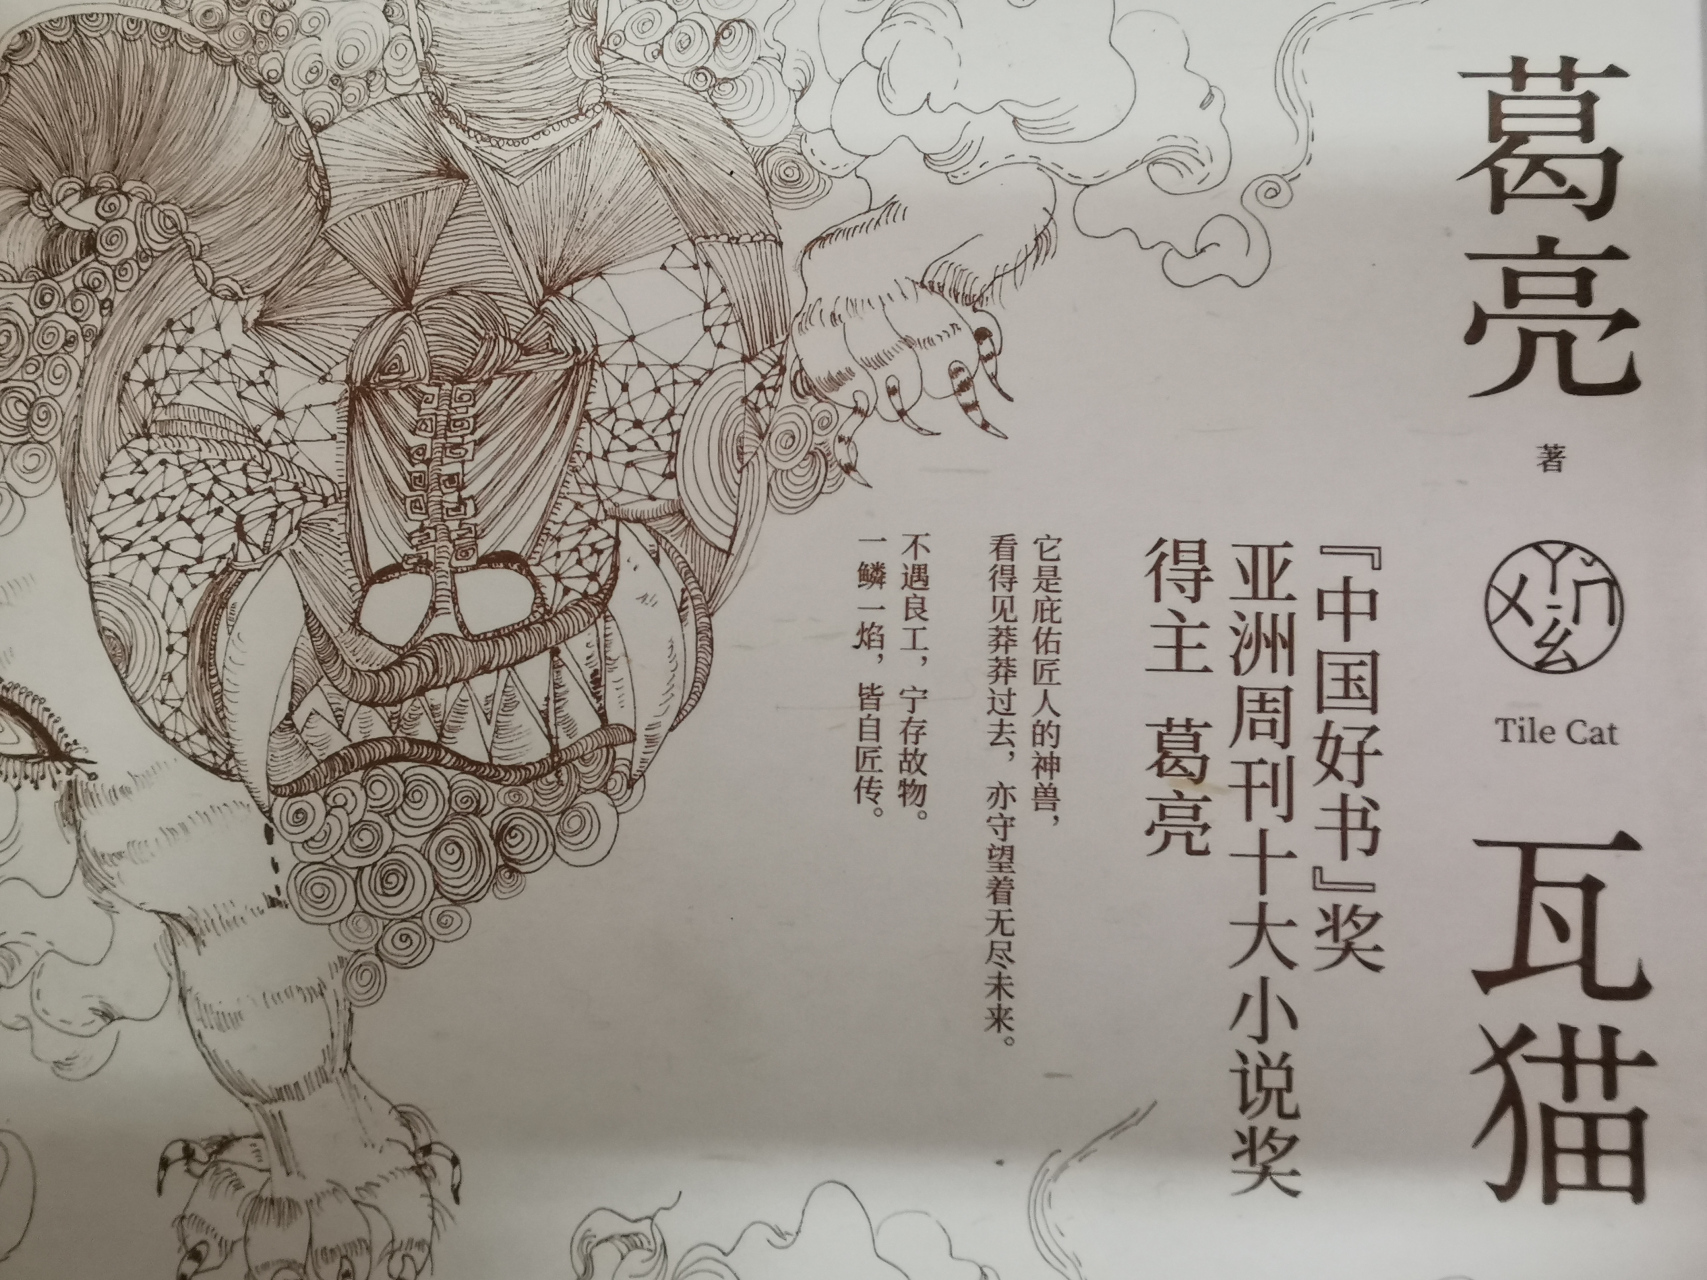 葛亮
著
ㄚˇ
ㄇㄠ
Tile Cat
瓦猫
『中国好书』奖
亚洲周刊十大小说奖
得主 葛亮
它是庇佑匠人的神兽，
看得见莽莽过去，亦守望着无尽未来。
不遇良工，宁存故物。
一鳞一焰，皆自匠传。